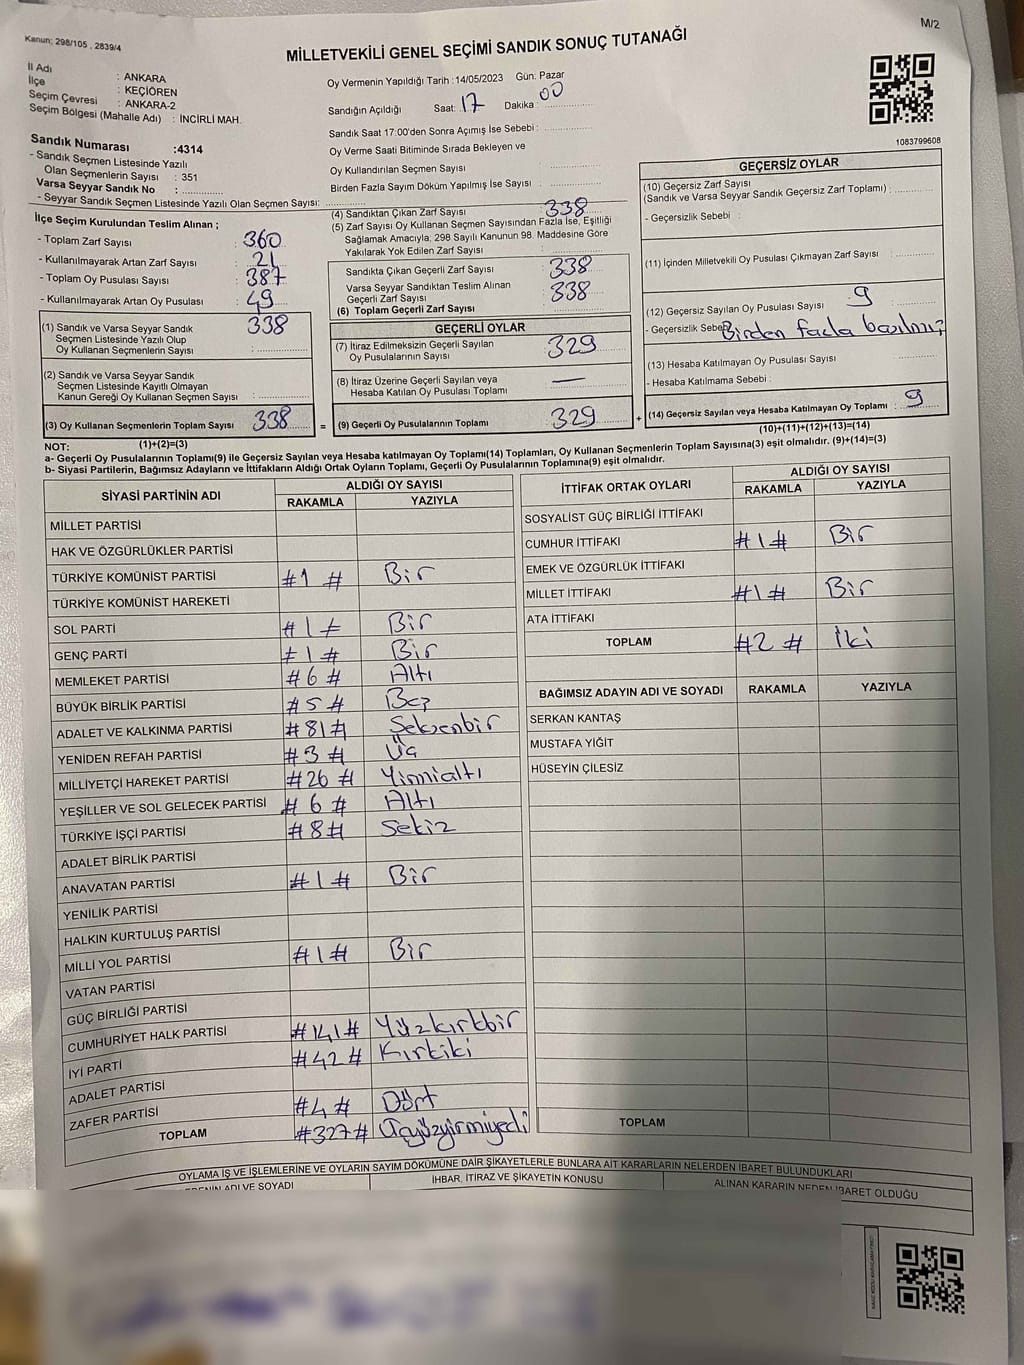 Kanun; 298/105 , 2839/4
M/2
MİLLETVEKİLİ GENEL SEÇİMİ SANDIK SONUÇ TUTANAĞI
İl Adı : ANKARA
İlçe : KEÇİÖREN
Seçim Çevresi : ANKARA-2
Seçim Bölgesi (Mahalle Adı) : İNCİRLİ MAH.
Sandık Numarası :4314
- Sandık Seçmen Listesinde Yazılı
Olan Seçmenlerin Sayısı : 351
Varsa Seyyar Sandık No :
- Seyyar Sandık Seçmen Listesinde Yazılı Olan Seçmen Sayısı:
Oy Vermenin Yapıldığı Tarih :14/05/2023 Gün: Pazar
Sandığın Açıldığı Saat: 17 Dakika : 00
Sandık Saat 17:00'den Sonra Açımış İse Sebebi :
Oy Verme Saati Bitiminde Sırada Bekleyen ve
Oy Kullandırılan Seçmen Sayısı :
Birden Fazla Sayım Döküm Yapılmış İse Sayısı :
1083799608
İlçe Seçim Kurulundan Teslim Alınan ;
- Toplam Zarf Sayısı : 360
- Kullanılmayarak Artan Zarf Sayısı : 21
- Toplam Oy Pusulası Sayısı : 387
- Kullanılmayarak Artan Oy Pusulası : 49
(1) Sandık ve Varsa Seyyar Sandık 338
Seçmen Listesinde Yazılı Olup
Oy Kullanan Seçmenlerin Sayısı :
(2) Sandık ve Varsa Seyyar Sandık
Seçmen Listesinde Kayıtlı Olmayan
Kanun Gereği Oy Kullanan Seçmen Sayısı :
(3) Oy Kullanan Seçmenlerin Toplam Sayısı 338
(1)+(2)=(3)
(4) Sandıktan Çıkan Zarf Sayısı : 338
(5) Zarf Sayısı Oy Kullanan Seçmen Sayısından Fazla İse, Eşitliği
Sağlamak Amacıyla; 298 Sayılı Kanunun 98. Maddesine Göre
Yakılarak Yok Edilen Zarf Sayısı :
Sandıkta Çıkan Geçerli Zarf Sayısı : 338
Varsa Seyyar Sandıktan Teslim Alınan
Geçerli Zarf Sayısı : 338
(6) Toplam Geçerli Zarf Sayısı :
GEÇERLİ OYLAR
(7) İtiraz Edilmeksizin Geçerli Sayılan
Oy Pusulalarının Sayısı : 329
(8) İtiraz Üzerine Geçerli Sayılan veya
Hesaba Katılan Oy Pusulası Toplamı : —
= (9) Geçerli Oy Pusulalarının Toplamı : 329 +
GEÇERSİZ OYLAR
(10) Geçersiz Zarf Sayısı
(Sandık ve Varsa Seyyar Sandık Geçersiz Zarf Toplamı) :
- Geçersizlik Sebebi :
(11) İçinden Milletvekili Oy Pusulası Çıkmayan Zarf Sayısı :
(12) Geçersiz Sayılan Oy Pusulası Sayısı : 9
- Geçersizlik Sebebi Birden fazla basılmış
(13) Hesaba Katılmayan Oy Pusulası Sayısı :
- Hesaba Katılmama Sebebi :
(14) Geçersiz Sayılan veya Hesaba Katılmayan Oy Toplamı : 9
(10)+(11)+(12)+(13)=(14)
NOT:
a- Geçerli Oy Pusulalarının Toplamı(9) ile Geçersiz Sayılan veya Hesaba katılmayan Oy Toplamı(14) Toplamları, Oy Kullanan Seçmenlerin Toplam Sayısına(3) eşit olmalıdır. (9)+(14)=(3)
b- Siyasi Partilerin, Bağımsız Adayların ve İttifakların Aldığı Ortak Oyların Toplamı, Geçerli Oy Pusulalarının Toplamına(9) eşit olmalıdır.
SİYASİ PARTİNİN ADI
ALDIĞI OY SAYISI
RAKAMLA YAZIYLA
MİLLET PARTİSİ
HAK VE ÖZGÜRLÜKLER PARTİSİ
TÜRKİYE KOMÜNİST PARTİSİ #1# Bir
TÜRKİYE KOMÜNİST HAREKETİ
SOL PARTİ #1# Bir
GENÇ PARTİ #1# Bir
MEMLEKET PARTİSİ #6# Altı
BÜYÜK BİRLİK PARTİSİ #5# Beş
ADALET VE KALKINMA PARTİSİ #81# Seksenbir
YENİDEN REFAH PARTİSİ #3# Üç
MİLLİYETÇİ HAREKET PARTİSİ #26# Yirmialtı
YEŞİLLER VE SOL GELECEK PARTİSİ #6# Altı
TÜRKİYE İŞÇİ PARTİSİ #8# Sekiz
ADALET BİRLİK PARTİSİ
ANAVATAN PARTİSİ #1# Bir
YENİLİK PARTİSİ
HALKIN KURTULUŞ PARTİSİ
MİLLİ YOL PARTİSİ #1# Bir
VATAN PARTİSİ
GÜÇ BİRLİĞİ PARTİSİ
CUMHURİYET HALK PARTİSİ #141# Yüzkırkbir
İYİ PARTİ #42# Kırkiki
ADALET PARTİSİ
ZAFER PARTİSİ #4# Dört
TOPLAM #327# Üçyüzyirmiyedi
İTTİFAK ORTAK OYLARI
ALDIĞI OY SAYISI
RAKAMLA YAZIYLA
SOSYALİST GÜÇ BİRLİĞİ İTTİFAKI
CUMHUR İTTİFAKI #1# Bir
EMEK VE ÖZGÜRLÜK İTTİFAKI
MİLLET İTTİFAKI #1# Bir
ATA İTTİFAKI
TOPLAM #2# İki
BAĞIMSIZ ADAYIN ADI VE SOYADI RAKAMLA YAZIYLA
SERKAN KANTAŞ
MUSTAFA YİĞİT
HÜSEYİN ÇİLESİZ
TOPLAM
OYLAMA İŞ VE İŞLEMLERİNE VE OYLARIN SAYIM DÖKÜMÜNE DAİR ŞİKAYETLERLE BUNLARA AİT KARARLARIN NELERDEN İBARET BULUNDUKLARI
ADI VE SOYADI
İHBAR, İTİRAZ VE ŞİKAYETİN KONUSU
ALINAN KARARIN NEDEN İBARET OLDUĞU